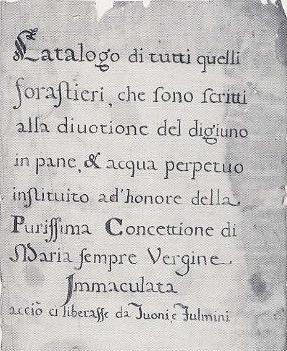 Catalogo di tutti quelli
forastieri, che sono scritti
alla divotione del digiuno
in pane, & acqua perpetuo
instituito ad'honore della
Purissima Concettione di
Maria sempre Vergine
Immaculata
acciò ci liberasse da Tuoni e Fulmini